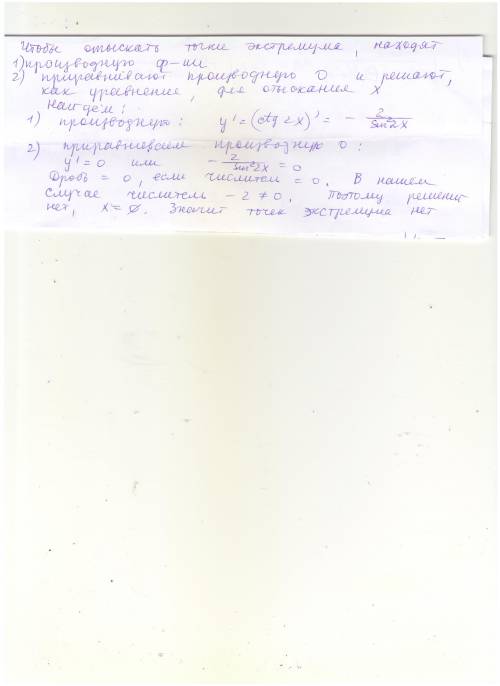 Чтобы отыскать точки экстремума, находят
1) производную ф-ии
2) приравнивают производную 0 и решают,
как уравнение, для отыскания x
Найдём:
1) производную: y' = (ctg 2x)' = - 2/sin²2x
2) приравниваем производную 0:
y' = 0 или - 2/sin²2x = 0
Дробь = 0, если числитель = 0. В нашем
случае числитель - 2 ≠ 0, Поэтому решений
нет, x = ∅. Значит точек экстремума нет